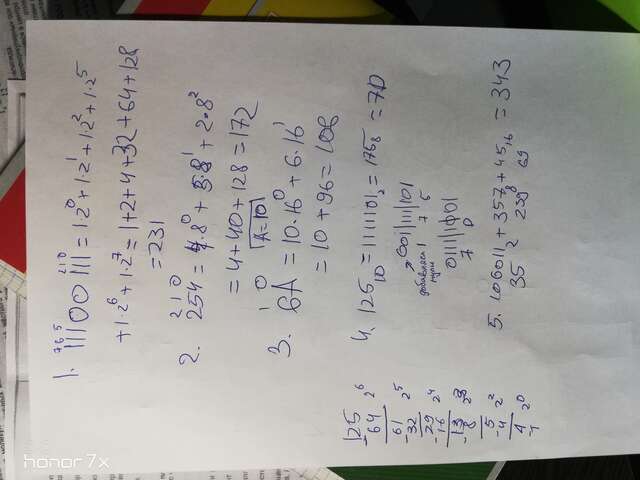 7 6 5 2 1 0
1. 11100111 = 1·2⁰ + 1·2¹ + 1·2² + 1·2⁵
+ 1·2⁶ + 1·2⁷ = 1+2+4+32+64+128
= 231
2 1 0
2. 254 = 4·8⁰ + 5·8¹ + 2·8²
= 4+40+128 = 172
A=10
1 0
3. 6A = 10·16⁰ + 6·16¹
= 10+96 = 106
4. 125₁₀ = 1111101₂ = 175₈ = 7D
001111101
добавляем 1 7 5
нули
01111101
7 D
5. 100011₂ + 357₈ + 45₁₆ = 343
35 239 69
125
- 64 2⁶
61
- 32 2⁵
29
- 16 2⁴
13
- 8 2³
5
- 4 2²
1 2⁰
honor 7x